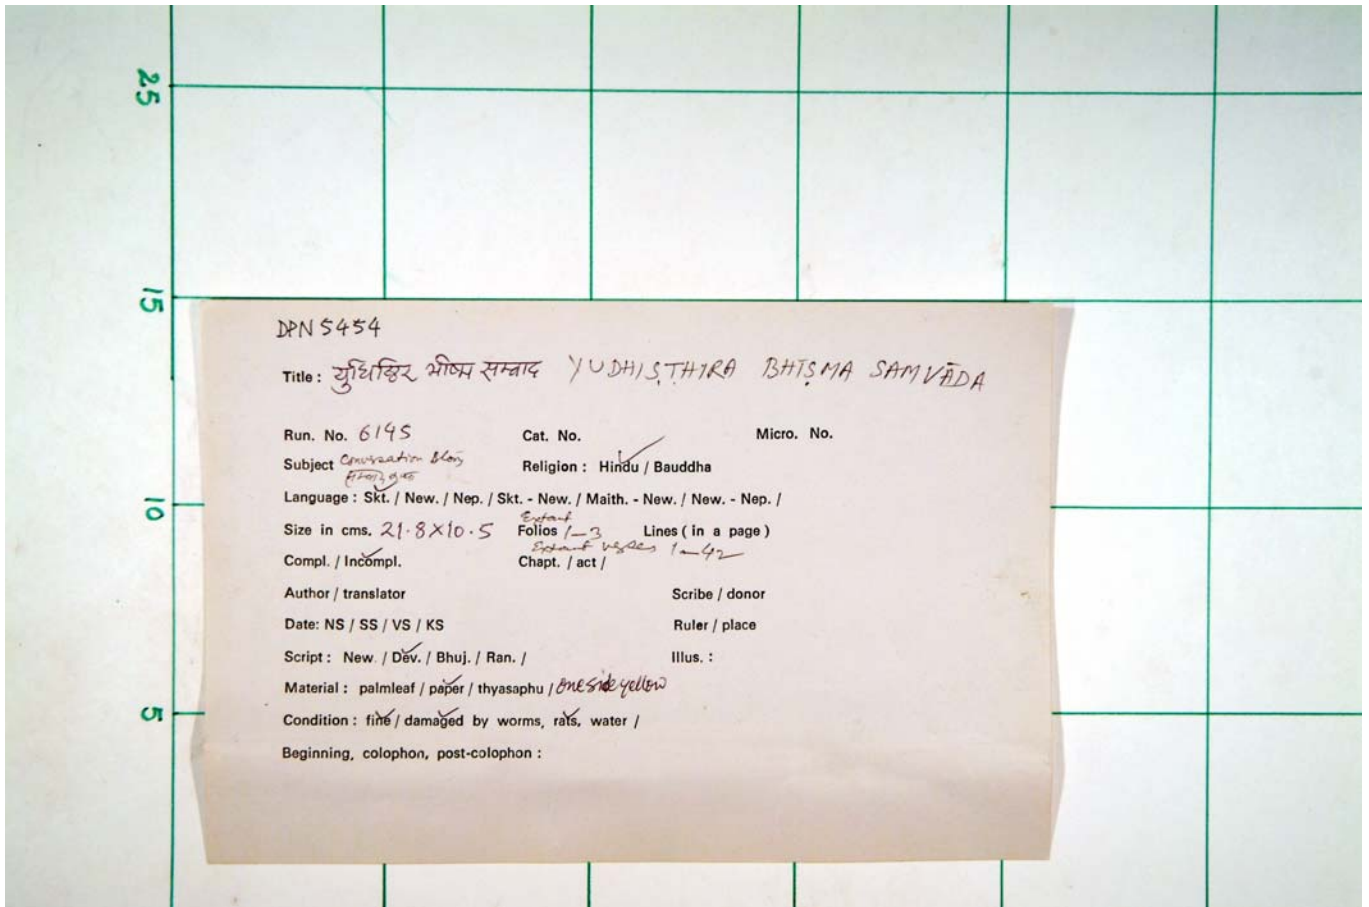 25
15
10
5
DPN 5454
Title : युधिष्ठिर भीष्म सम्वाद YUDHIṢṬHIRA BHĪṢMA SAMVĀDA
Run. No. 6145 Cat. No. Micro. No.
Subject Conversation Religion : Hindu / Bauddha
Language : Skt. / New. / Nep. / Skt. - New. / Maith. - New. / New. - Nep. /
Extant
Size in cms. 21.8X10.5 Folios 1-3 Lines ( in a page )
Extant verses 1-42
Compl. / Incompl. Chapt. / act /
Author / translator Scribe / donor
Date: NS / SS / VS / KS Ruler / place
Script : New. / Dev. / Bhuj. / Ran. / Illus. :
Material : palmleaf / paper / thyasaphu / one side yellow
Condition : fine / damaged by worms, rats, water /
Beginning, colophon, post-colophon :